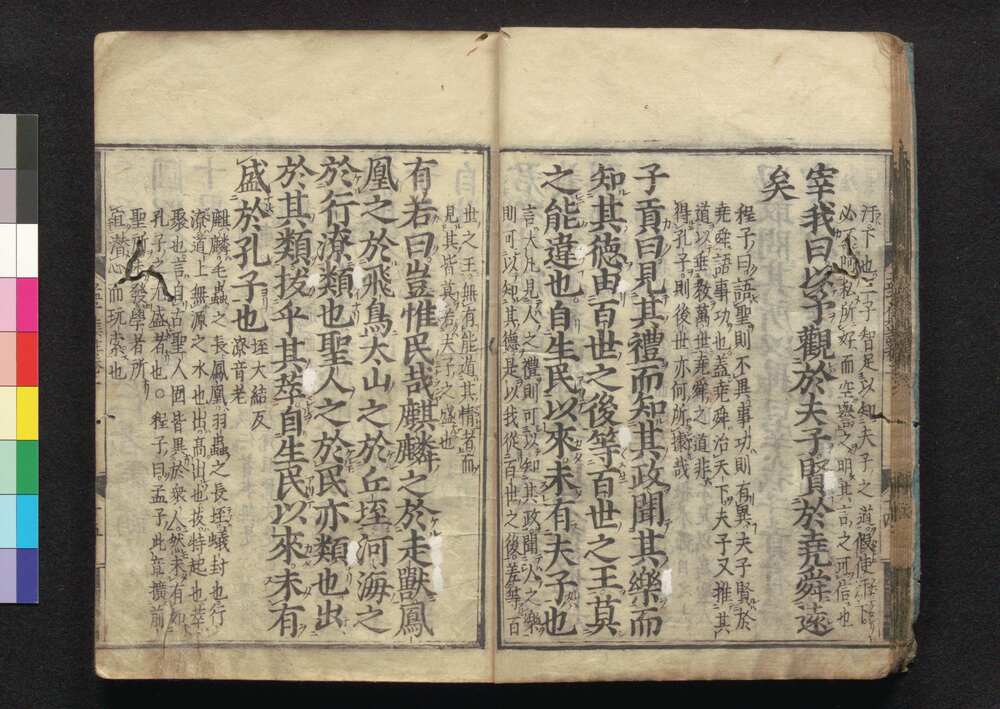 汙下也三子智足以知夫子之道假使汙下
必不阿私所好而空譽之明其言之可信也
宰我曰以予觀於夫子賢於堯舜遠
矣
程子曰語聖則不異事功則有異夫子賢於
堯舜語事功也蓋堯舜治天下夫子又推其
道以垂教萬世堯舜之道非
得孔子則後世亦何所據哉
子貢曰見其禮而知其政聞其樂而
知其德由百世之後等百世之王莫
之能違也自生民以來未有夫子也
言大凡見人之禮則可以知其政聞人之樂
則可以知其德是以我從百世之後差等百
世之王無有能遁其情者而
見其皆莫若夫子之盛也
有若曰豈惟民哉麒麟之於走獸鳳
凰之於飛鳥太山之於丘垤河海之
於行潦類也聖人之於民亦類也出
於其類拔乎其萃自生民以來未有
盛於孔子也
垤大結反
潦音老
麒麟毛蟲之長鳳凰羽蟲之長垤蟻封也行
潦道上無源之水也出高出也拔特起也萃
聚也言自古聖人固皆異於衆人然未有如
孔子之尤盛者也。程子曰孟子此章擴前
聖所未發學者所
宜潛心而玩索也